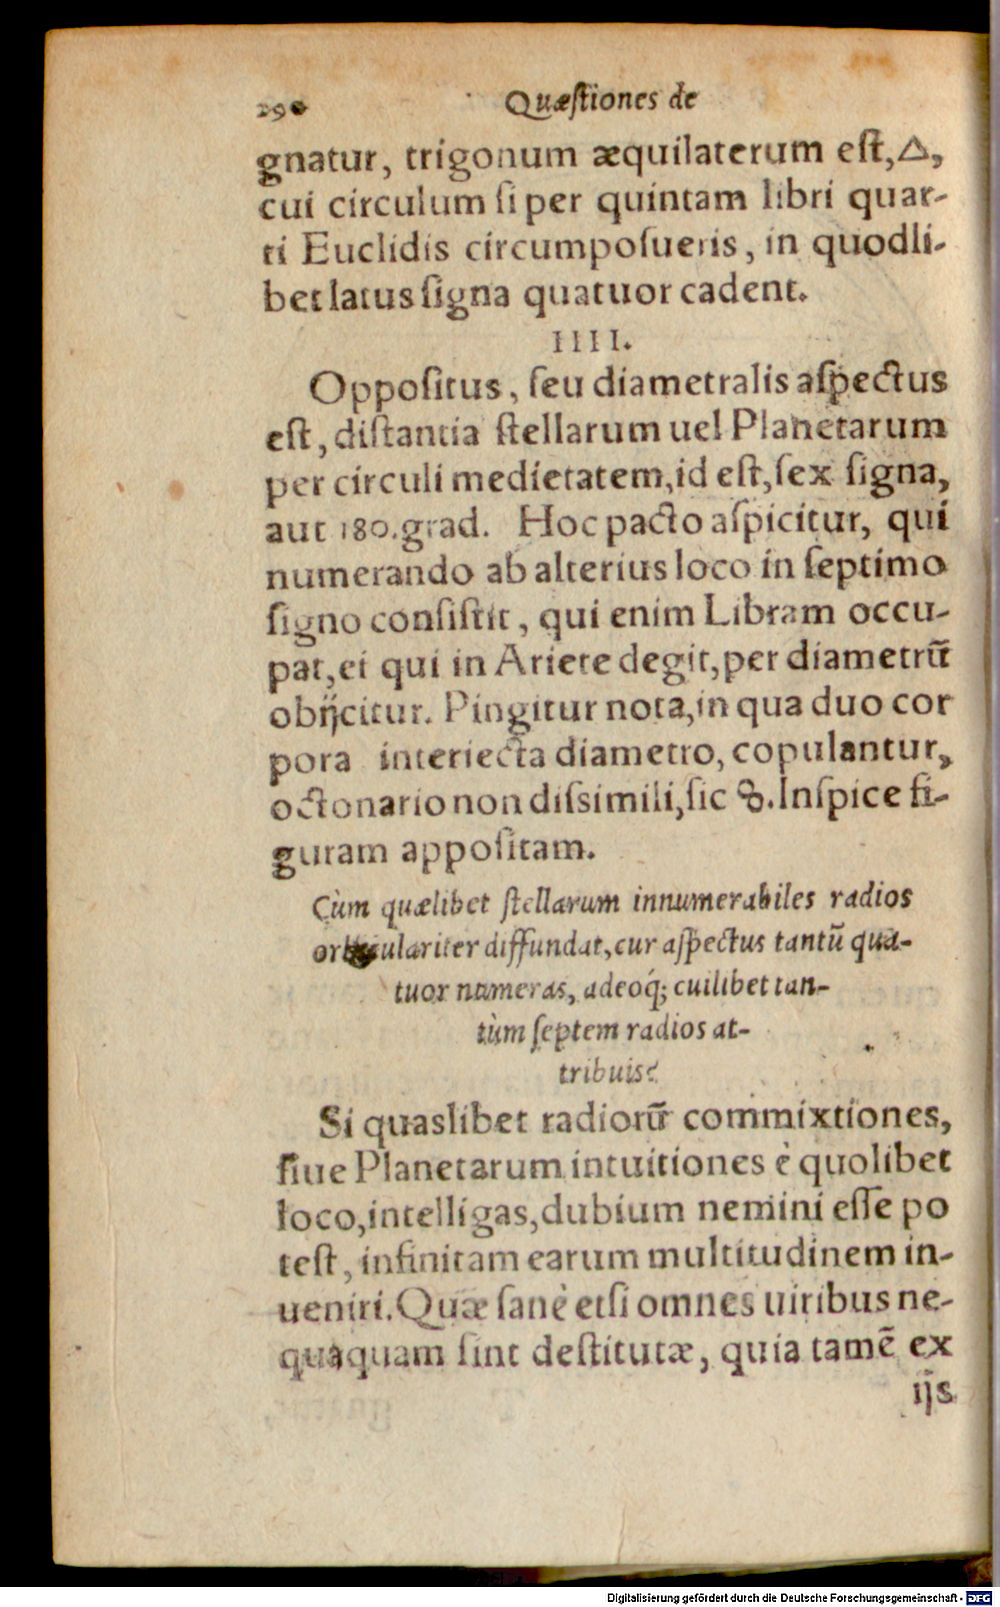 290 Quæſtiones de
gnatur, trigonum æquilaterum eſt, △,
cui circulum ſi per quintam libri quar-
ti Euclidis circumpoſueris, in quodli-
bet latus ſigna quatuor cadent.
IIII.
Oppoſitus, ſeu diametralis aſpectus
eſt, diſtantia ſtellarum uel Planetarum
per circuli medietatem, id eſt, ſex ſigna,
aut 180. grad. Hoc pacto aſpicitur, qui
numerando ab alterius loco in ſeptimo
ſigno conſiſtit, qui enim Libram occu-
pat, ei qui in Ariete degit, per diametrū
obijcitur. Pingitur nota, in qua duo cor
pora interiecta diametro, copulantur,
octonario non diſsimili, ſic ☍. Inſpice fi-
guram appoſitam.
Cùm quælibet ſtellarum innumerabiles radios
orbiculariter diffundat, cur aſpectus tantū qua-
tuor numeras, adeoq́; cuilibet tan-
tùm ſeptem radios at-
tribuis?
Si quaslibet radiorū commixtiones,
ſiue Planetarum intuitiones è quolibet
loco, intelligas, dubium nemini eſſe po
teſt, infinitam earum multitudinem in-
ueniri. Quæ ſanè etſi omnes uiribus ne-
quaquam ſint deſtitutæ, quia tamē ex
ijs
Digitalisierung gefördert durch die Deutsche Forschungsgemeinschaft - DFG